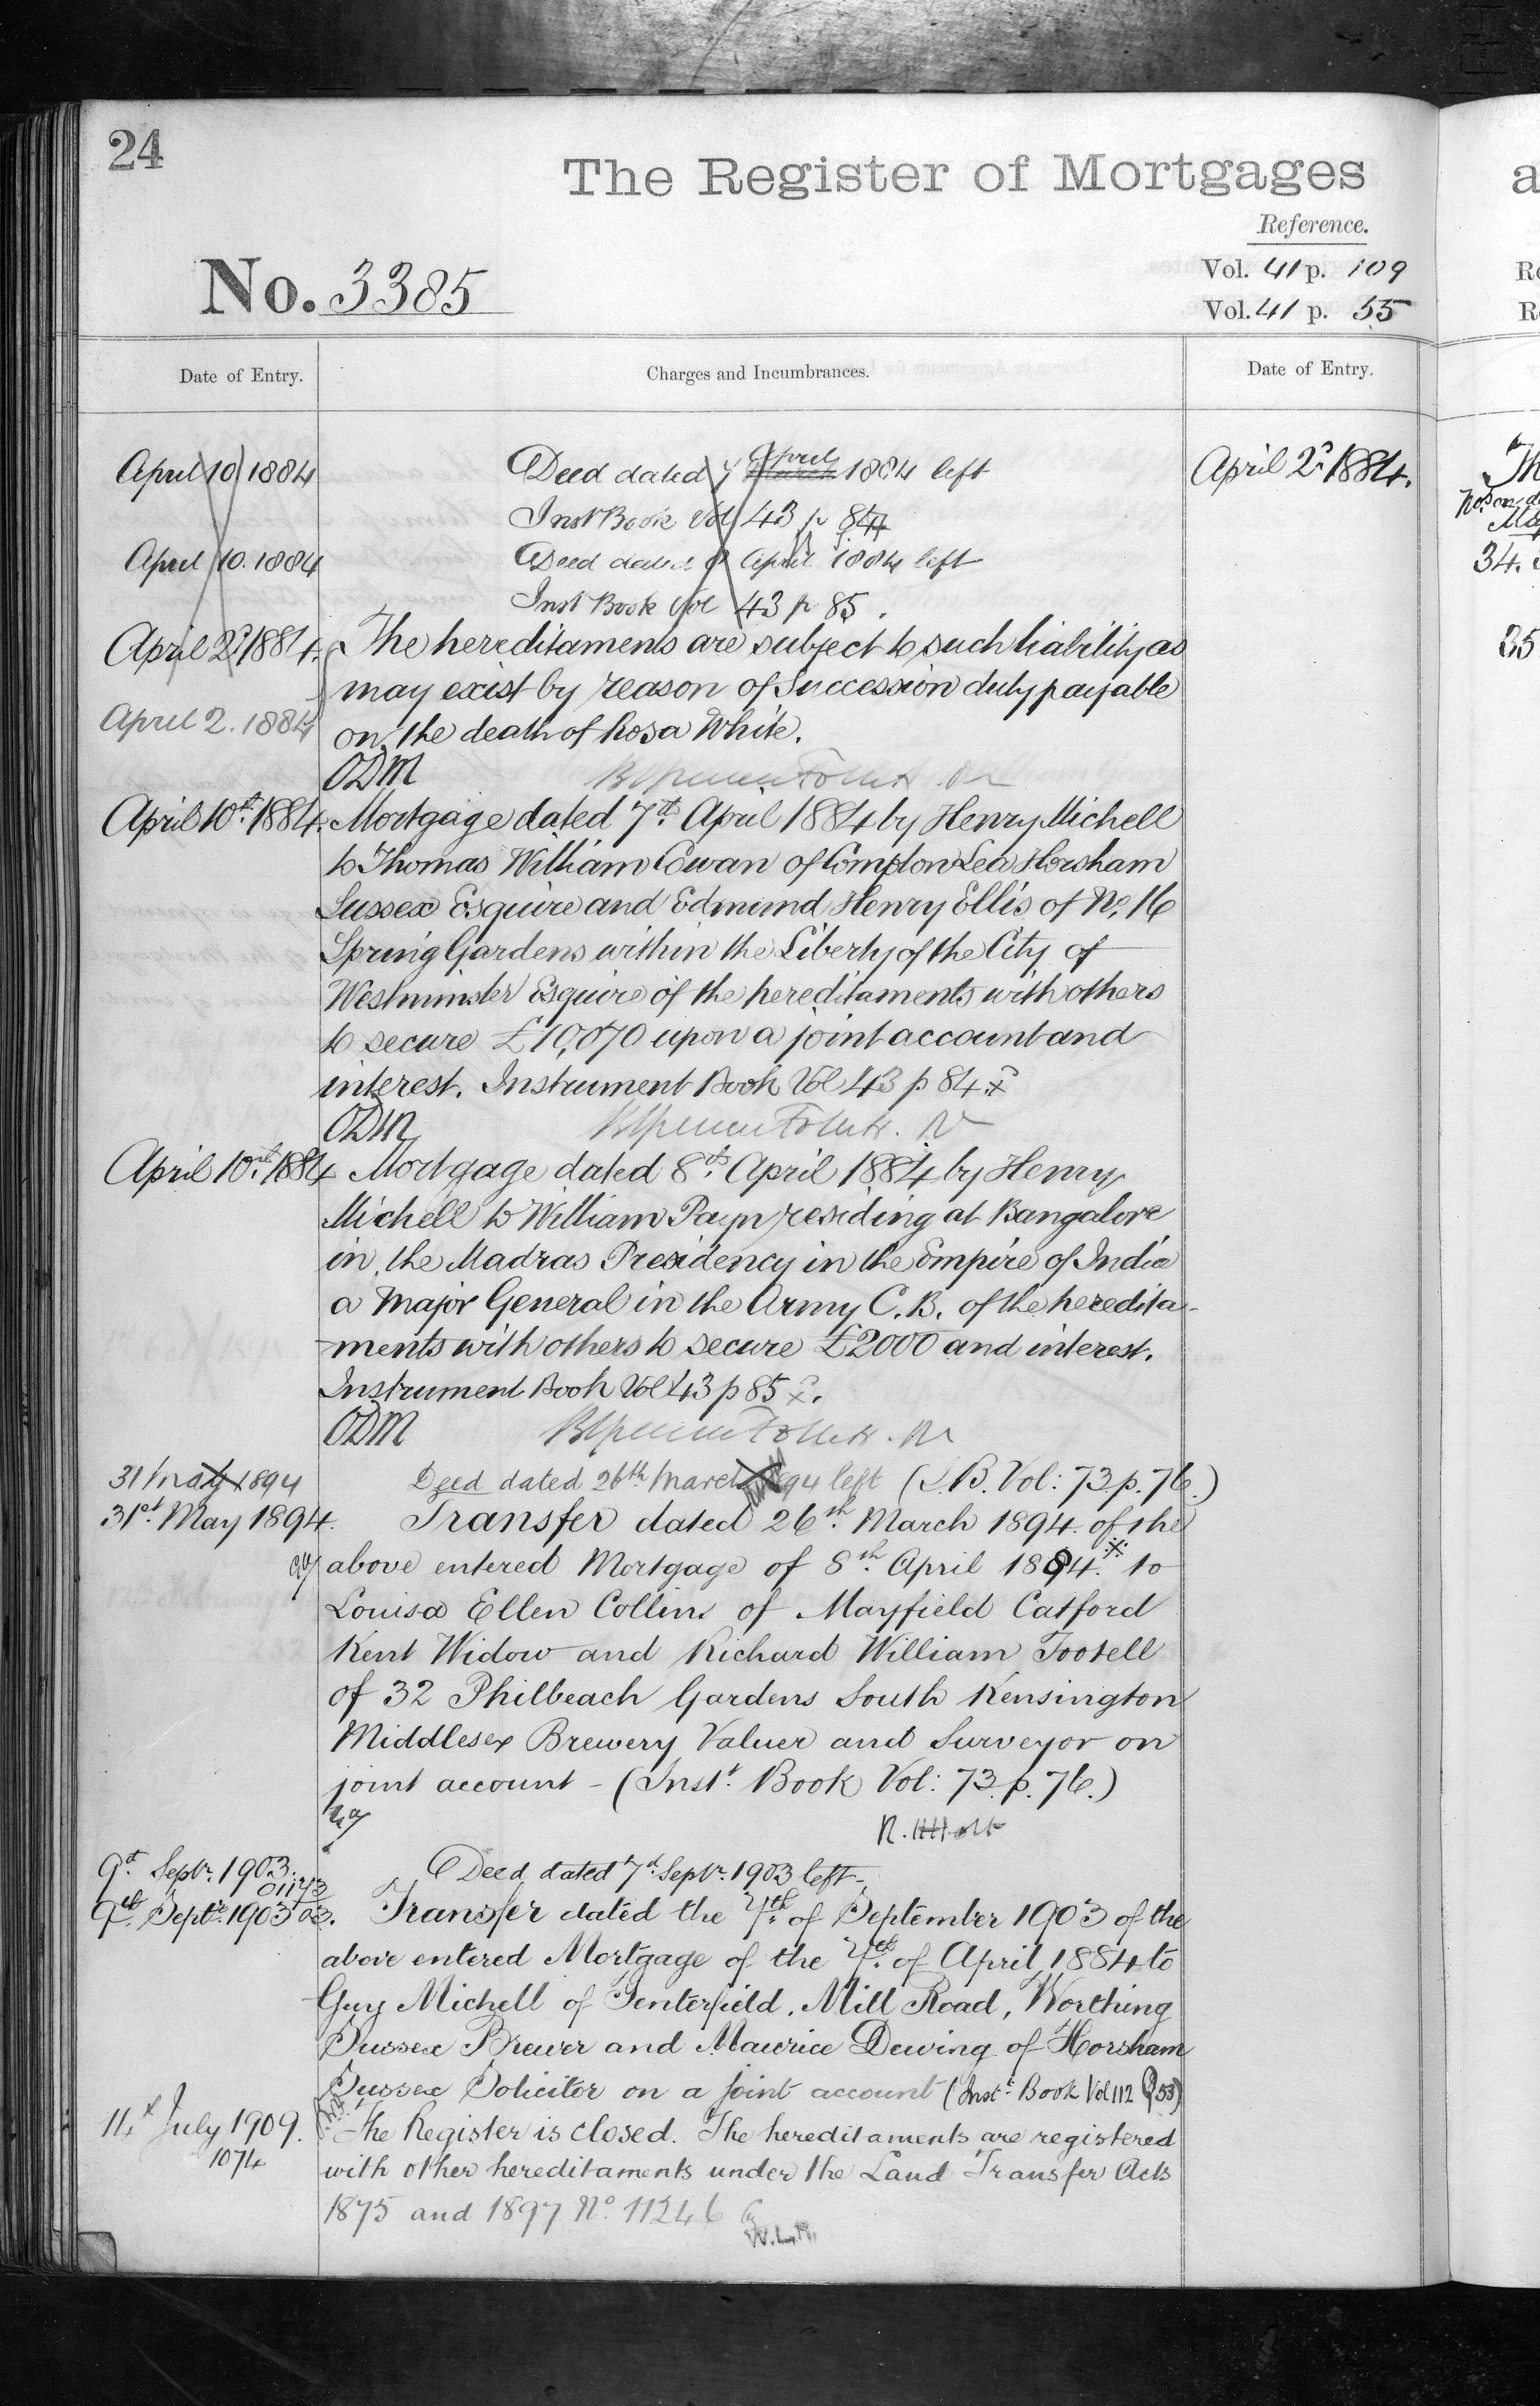 24
The Register of Mortgages
Reference.
No. 3385
Vol. 41 p. 109
Vol. 41 p. 55
Date of Entry.
Charges and Incumbrances.
Date of Entry.
April 10 1884
Deed dated 7 April March 1884 left
April 2d 1884.
Inst Book Vol 43 p 84
April 10. 1884
Deed dated 8 April 1884 left
Inst Book Vol 43 p 85.
April 2d 1884.
The hereditaments are subject to such liability as
may exist by reason of Succession duty payable
April 2. 1884
on the death of Rosa White.
ODM
April 10th 1884.
Mortgage dated 7th April 1884 by Henry Michell
to Thomas William Cowan of Compton Lea Horsham
Sussex Esquire and Edmund Henry Ellis of No. 16
Spring Gardens within the Liberty of the City of
Westminster Esquire of the hereditaments with others
to secure £10,070 upon a joint account and
interest. Instrument Book Vol 43 p 84.
ODM
April 10th 1884
Mortgage dated 8th April 1884 by Henry
Michell to William Payn residing at Bangalore
in the Madras Presidency in the Empire of India
a Major General in the Army C.B. of the heredita-
ments with others to secure £2000 and interest.
Instrument Book Vol 43 p 85.
ODM
31 May 1894
Deed dated 26th March 94 left (I.B. Vol: 73 p. 76.)
31st May 1894.
Transfer dated 26th March 1894 of the
above entered Mortgage of 8th April 1884 to
Louisa Ellen Collins of Mayfield Catford
Kent Widow and Richard William Tootell
of 32 Philbeach Gardens South Kensington
Middlesex Brewery Valuer and Surveyor on
joint account - (Inst. Book Vol: 73. p. 76.)
9th Septr. 1903.
Deed dated 7th Septr. 1903 left
01173
03.
9th Septr. 1903
Transfer dated the 7th of September 1903 of the
above entered Mortgage of the 7th of April 1884 to
Guy Michell of Tenterfield, Mill Road, Worthing
Sussex Brewer and Maurice Dewing of Horsham
Sussex Solicitor on a joint account (Inst. Book Vol 112 P 53)
14th July 1909.
The Register is closed. The hereditaments are registered
1074
with other hereditaments under the Land Transfer Acts
1875 and 1897 No. 11246